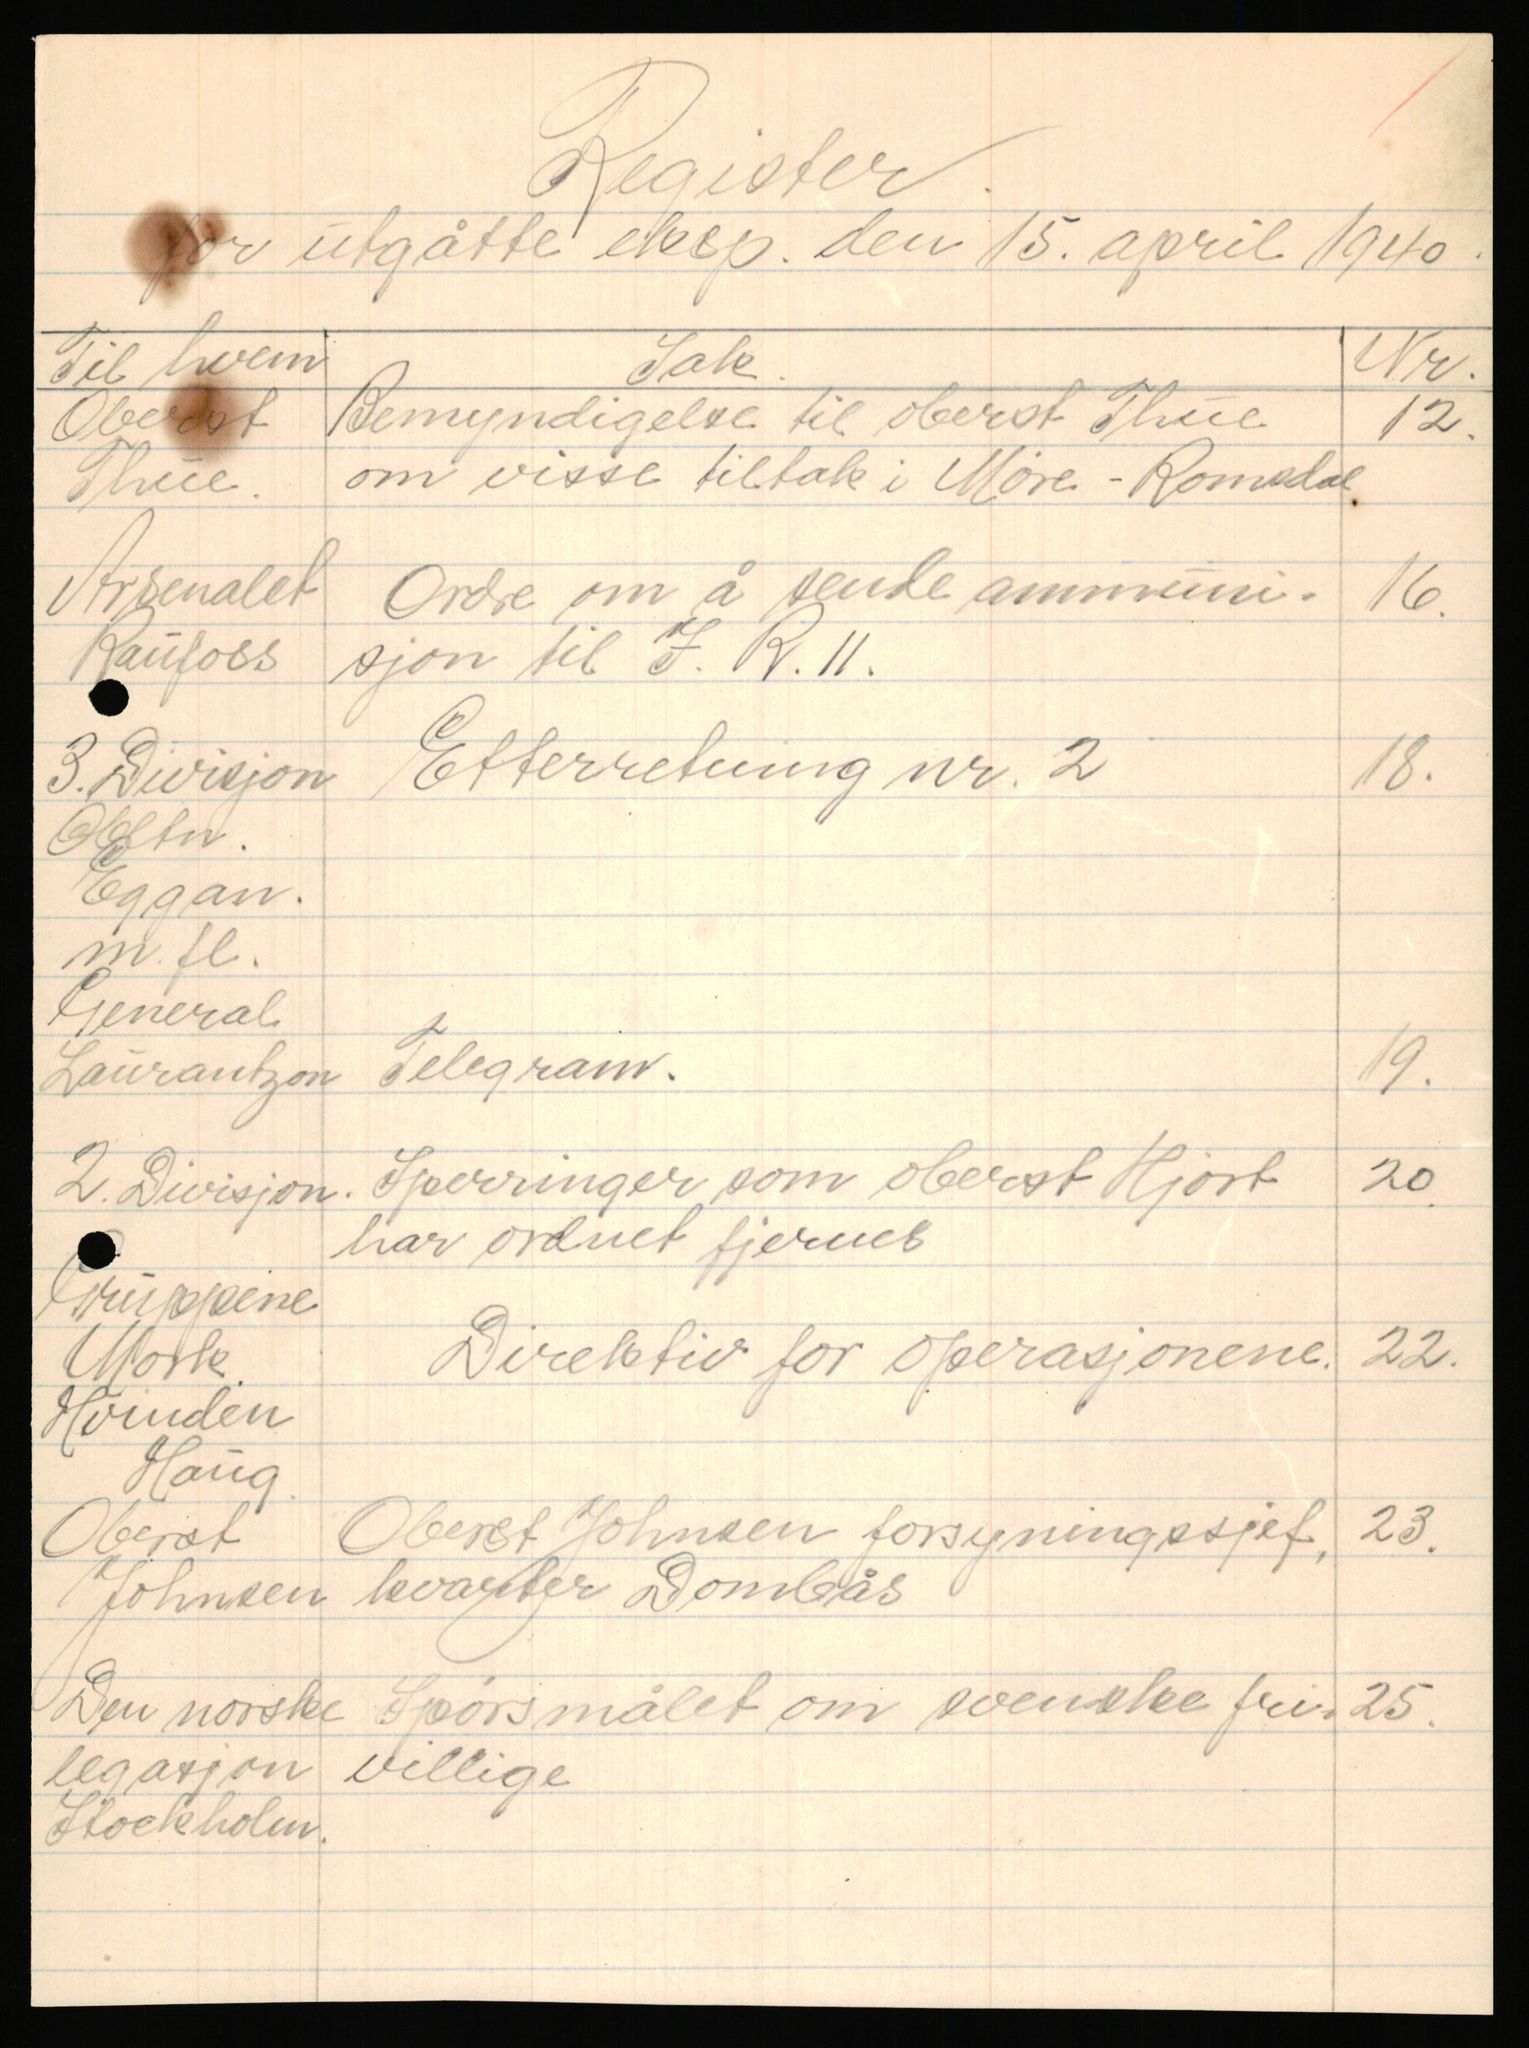 Register.
for utgåtte eksp. den 15. april 1940.
Til hvem Sak. Nr.
Oberst Bemyndigelse til oberst Thue 12.
Thue. om visse tiltak i Möre - Romsdal
Arsenalet Ordre om å sende ammuni- 16.
Raufoss sjon til I. R. 11.
3. Divisjon Etterretning nr. 2 18.
Obltn.
Eggan.
m. fl.
General
Laurantzon Telegram. 19.
2. Divisjon. Sperringer som oberst Hjort 20.
har ordnet fjernes
Gruppene
Mork. Direktiv for operasjonene. 22.
Hvinden
Haug.
Oberst Oberst Johnsen forsyningssjef, 23.
Johnsen kvarter Dombås
Den norske Spörsmålet om svenske fri- 25.
legasjon villige
Stockholm.